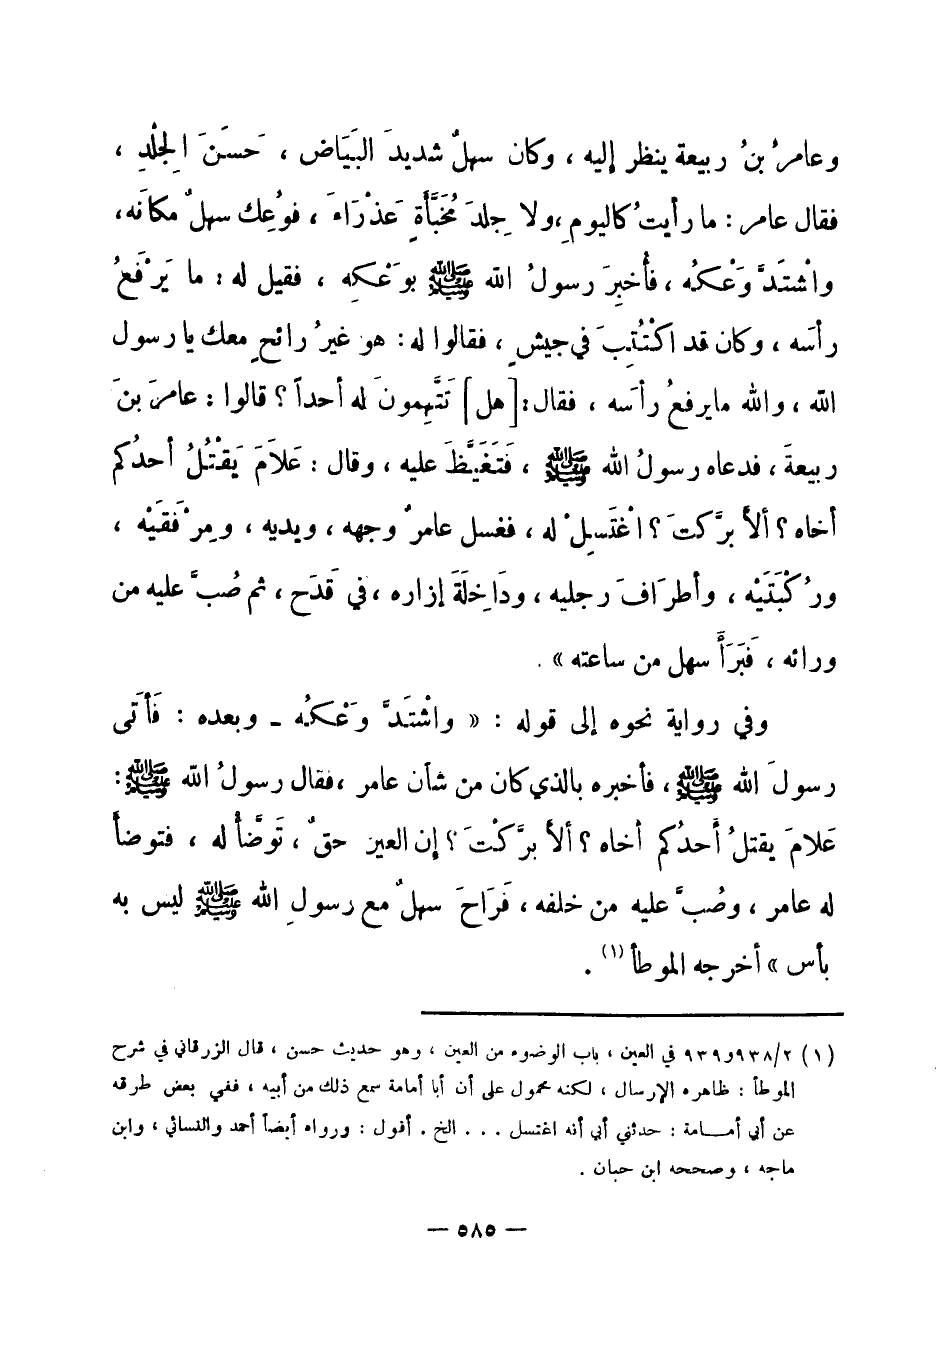 وعامرُ بنُ ربيعة ينظر إليه ، وكان سهلٌ شديدَ البَيَاض ، حَسَنَ الجِلْدِ ،
فقال عامر : ما رأيتُ كاليومِ ، ولا جِلدَ مُخَبَّأَةٍ عَذْرَاءَ ، فوُعِك سهلٌ مكانَه،
واشْتَدَّ وَعْكُه ، فأُخبِرَ رسولُ الله ﷺ بوَعْكِه ، فقيل له : ما يَرْفَعُ
رأسَه ، وكان قد اكْتُتِبَ في جيشٍ ، فقالوا له : هو غيرُ رائحٍ معك يا رسول
الله ، والله ما يرفعُ رأسَه ، فقال : [هل] تَتَّهِمونَ له أحداً ؟ قالوا : عامرَ بنَ
ربيعةَ ، فدعاه رسولُ الله ﷺ ، فَتَغَيَّظَ عليه ، وقال : عَلاَمَ يَقْتُلُ أحدُكم
أخاه ؟ ألاَّ برَّكتَ ؟ اغْتَسِلْ له ، فغسل عامرٌ وجهه ، ويديه ، ومِرْفَقَيْه ،
ورُكْبَتَيْه ، وأطرَافَ رجليه ، ودَاخِلَةَ إزاره ، في قَدَح ، ثم صُبَّ عليه من
ورائه ، فَبَرَأَ سهل من ساعته » .
وفي رواية نحوه إلى قوله : « واشْتَدَّ وَعْكُه ـ وبعده : فَأَتَى
رسولَ الله ﷺ ، فأخبره بالذي كان من شأن عامر ، فقال رسولُ الله ﷺ :
عَلامَ يقتلُ أَحدُكم أخاه ؟ ألاَّ برَّكْتَ ؟ إن العين حقٌ ، تَوَضَّأْ له ، فتوضأ
له عامر ، وصُبَّ عليه من خلفه ، فَرَاحَ سهلٌ مع رسولِ الله ﷺ ليس به
بأس » أخرجه الموطأ (١) .
(١) ٩٣٨/٢ و ٩٣٩ في العين ، باب الوضوء من العين ، وهو حديث حسن ، قال الزرقاني في شرح
الموطأ : ظاهره الإرسال ، لكنه محمول على أن أبا أمامة سمع ذلك من أبيه ، ففي بعض طرقه
عن أبي أمـــامة : حدثني أبي أنه اغتسل . . . الخ . أقول : ورواه أيضاً أحمد والنسائي ، وابن
ماجه ، وصححه ابن حبان .
— ٥٨٥ —